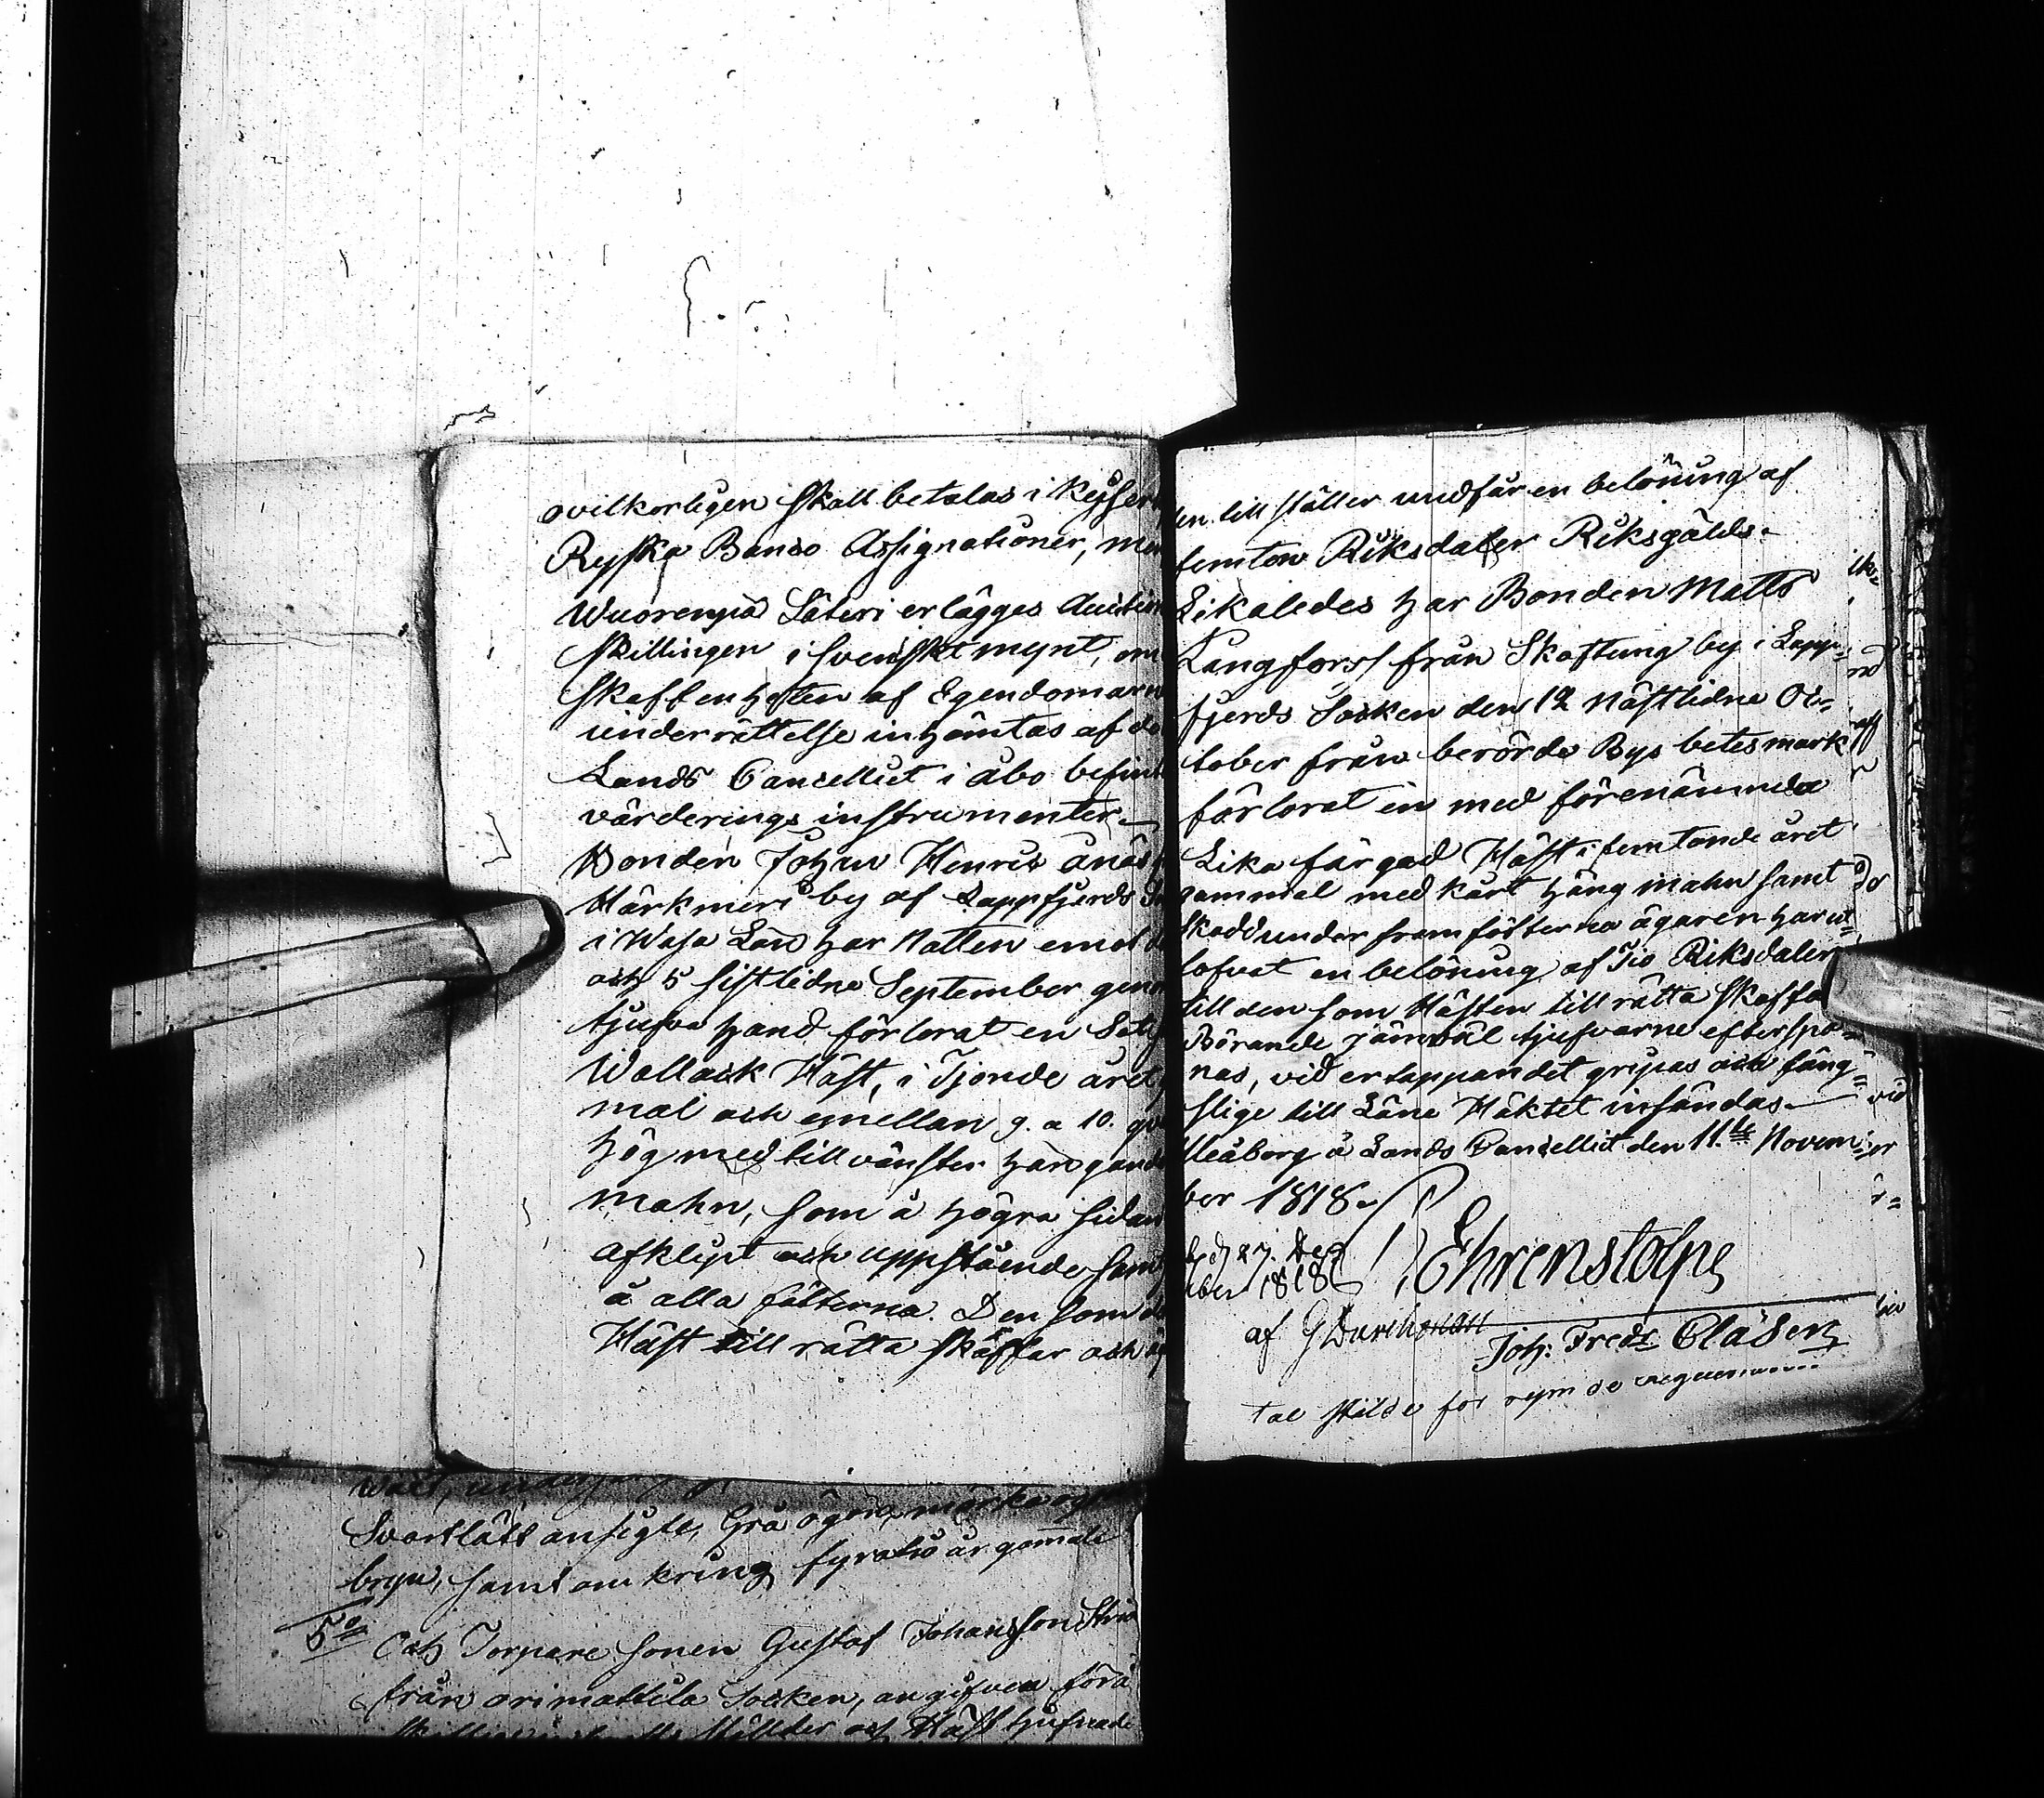 ovilkorligen Skall betalas i Keyser
Ryska Banco Assignationer, men
Wuorenpää Säteri erlägges Auction
Skillingen i Svenskt mynt, om
Skaffenheten af Egendomarn
underrättelse inhämtas af de
Lands Cancelliet i Åbo befint
värderings instrumenter.
Bonden Johan Henric
Härkmeri by af Lappfjerds
i Wasa Län har Natten emot
och 5 sistledne September geno
tjufva hand förlorat en
Wallack Häst, i Tjonde året
mal och emellan 9. a 10. qv
hög med till vänster hängande
mahn, som å högra sidan
afklipt och uppstående
å alla fötterna. Den som de
Häst till rätta skaffar och
den till ställer undfår en belöning af
femton Riksdaler Riksgälds.
Likaledes har Bonden Matts
Långfors från Skaftung by i Lapp=
fjerds Socken den 12 Nästledne Oc=
tober från berörde Bys betesmark
förlorat en med förenämnda
Lika färgad Häst i femtonde året
gammal med kårt häng mahn samt
Skodd under framfötterna ägaren har ut=
lofvat en belöning af Tio Riksdaler
till den som Hästen till rätta Skaffa
Börande jämväl tjufvarne efterspa=
nas, vid ertappandet gripas och fäng=
slige till Läne Häktet insändas.
Uleåborg å Lands Cancelliet den 11.te Novem=
ber 1818.
27. Dec
1818
Ehrenstolpe
af G
Joh: Fredr Clasen
Svartlätt ansigte, Grå ögon, mörka ögon
bryn, samt omkring fyratio år gamal
5o
Och Torpare sonen Gustaf Johansson
från Orimattila Socken, angifven för
och Häst tjufnad